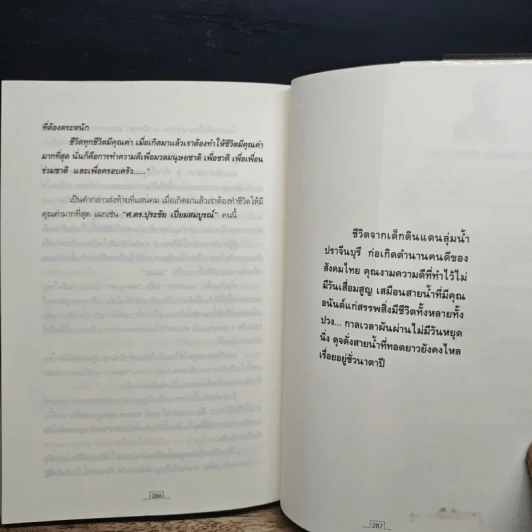 ที่ต้องตระหนัก
ชีวิตทุกชีวิตมีคุณค่า เมื่อเกิดมาแล้วเราต้องทำให้ชีวิตมีคุณค่า
มากที่สุด นั่นก็คือการทำความดีเพื่อมวลมนุษยชาติ เพื่อชาติ เพื่อเพื่อน
ร่วมชาติ และเพื่อครอบครัว....."
เป็นคำกล่าวส่งท้ายที่แสนคม เมื่อเกิดมาแล้วเราต้องทำชีวิตให้มี
คุณค่ามากที่สุด เฉกเช่น "ศ.ดร.ปุระชัย เปี่ยมสมบูรณ์" คนนี้
286
ชีวิตจากเด็กดินแดนลุ่มน้ำ
ปราจีนบุรี ก่อเกิดตำนานคนดีของ
สังคมไทย คุณงามความดีที่ทำไว้ไม่
มีวันเสื่อมสูญ เสมือนสายน้ำที่มีคุณ
อนันต์แก่สรรพสิ่งมีชีวิตทั้งหลายทั้ง
ปวง... กาลเวลาผันผ่านไม่มีวันหยุด
นิ่ง ดุจดั่งสายน้ำที่ทอดยาวยังคงไหล
เรื่อยอยู่ชั่วนาตาปี
287